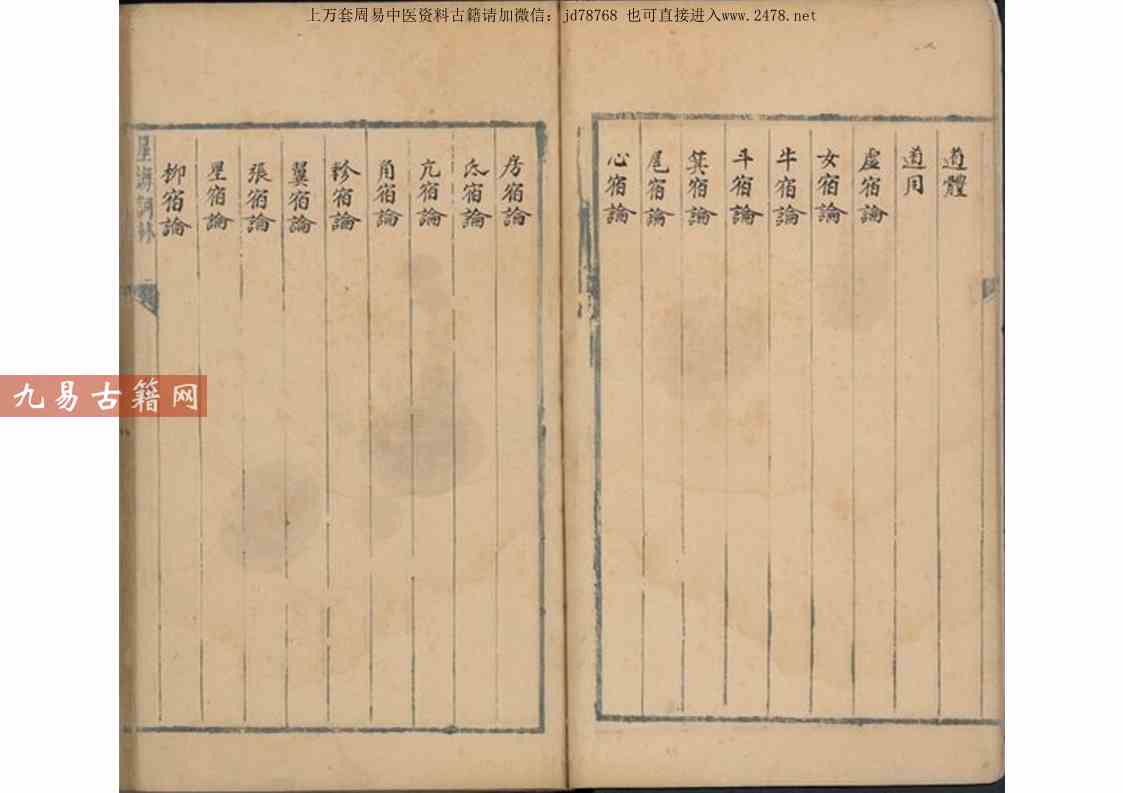 上万套周易中医资料古籍请加微信：jd78768 也可直接进入www.2478.net
道體
道用
虛宿論
女宿論
牛宿論
斗宿論
箕宿論
尾宿論
心宿論
房宿論
氐宿論
亢宿論
角宿論
軫宿論
翼宿論
張宿論
星宿論
柳宿論
星海詞林
九易古籍网